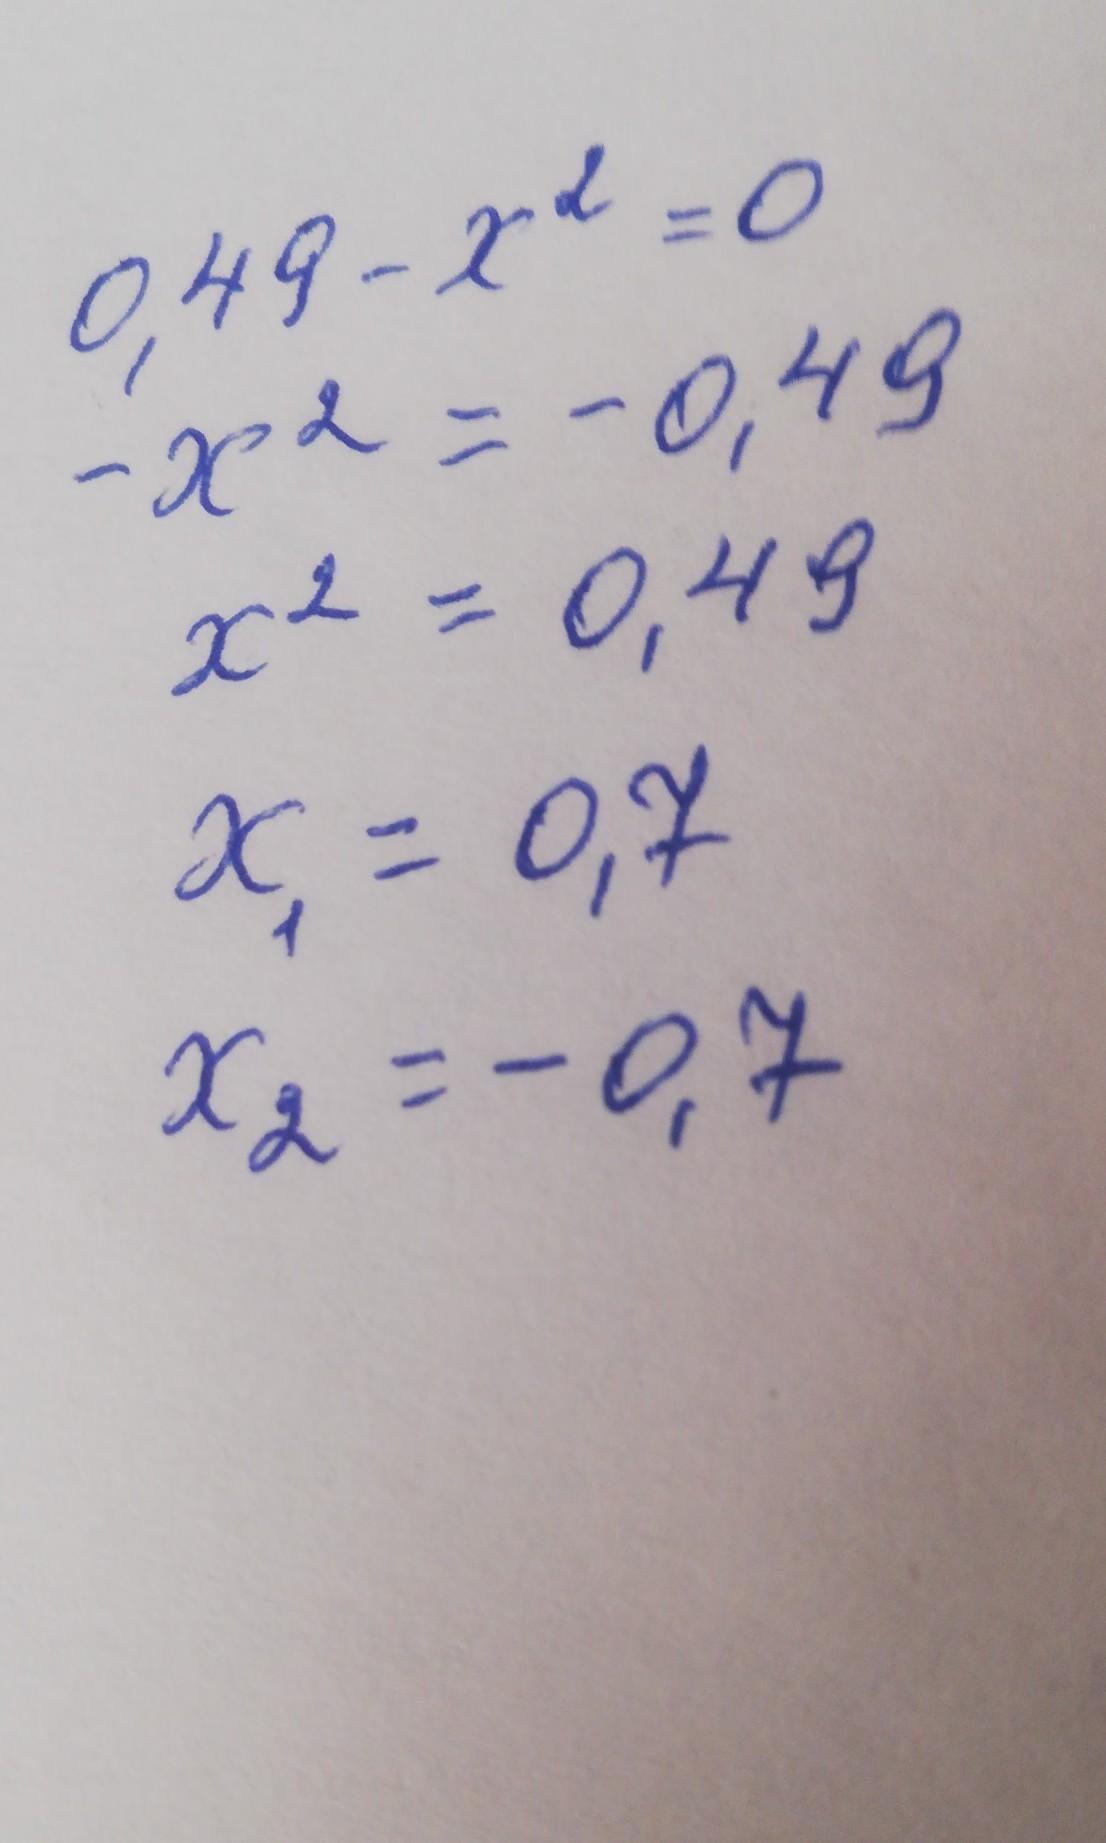 0,49 - x² = 0
- x² = - 0,49
x² = 0,49
x₁ = 0,7
x₂ = - 0,7